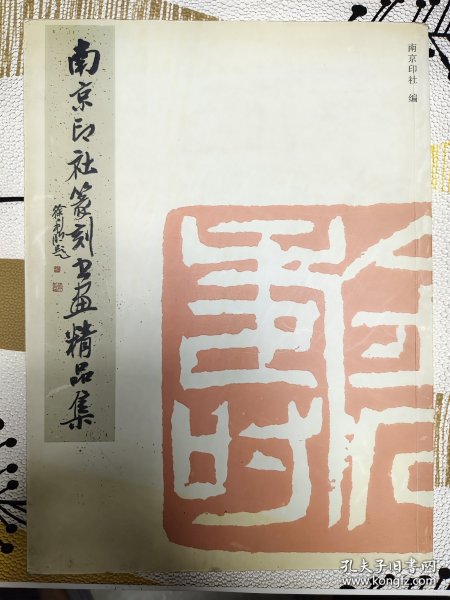 南京印社 编
南京印社篆刻书画精品集
徐利明题
孔夫子旧书网
www.kongfz.com